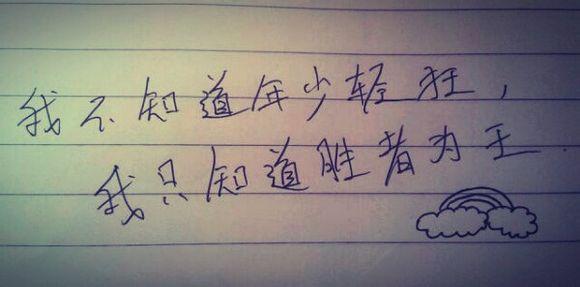 我不知道年少轻狂，
我只知道胜者为王.